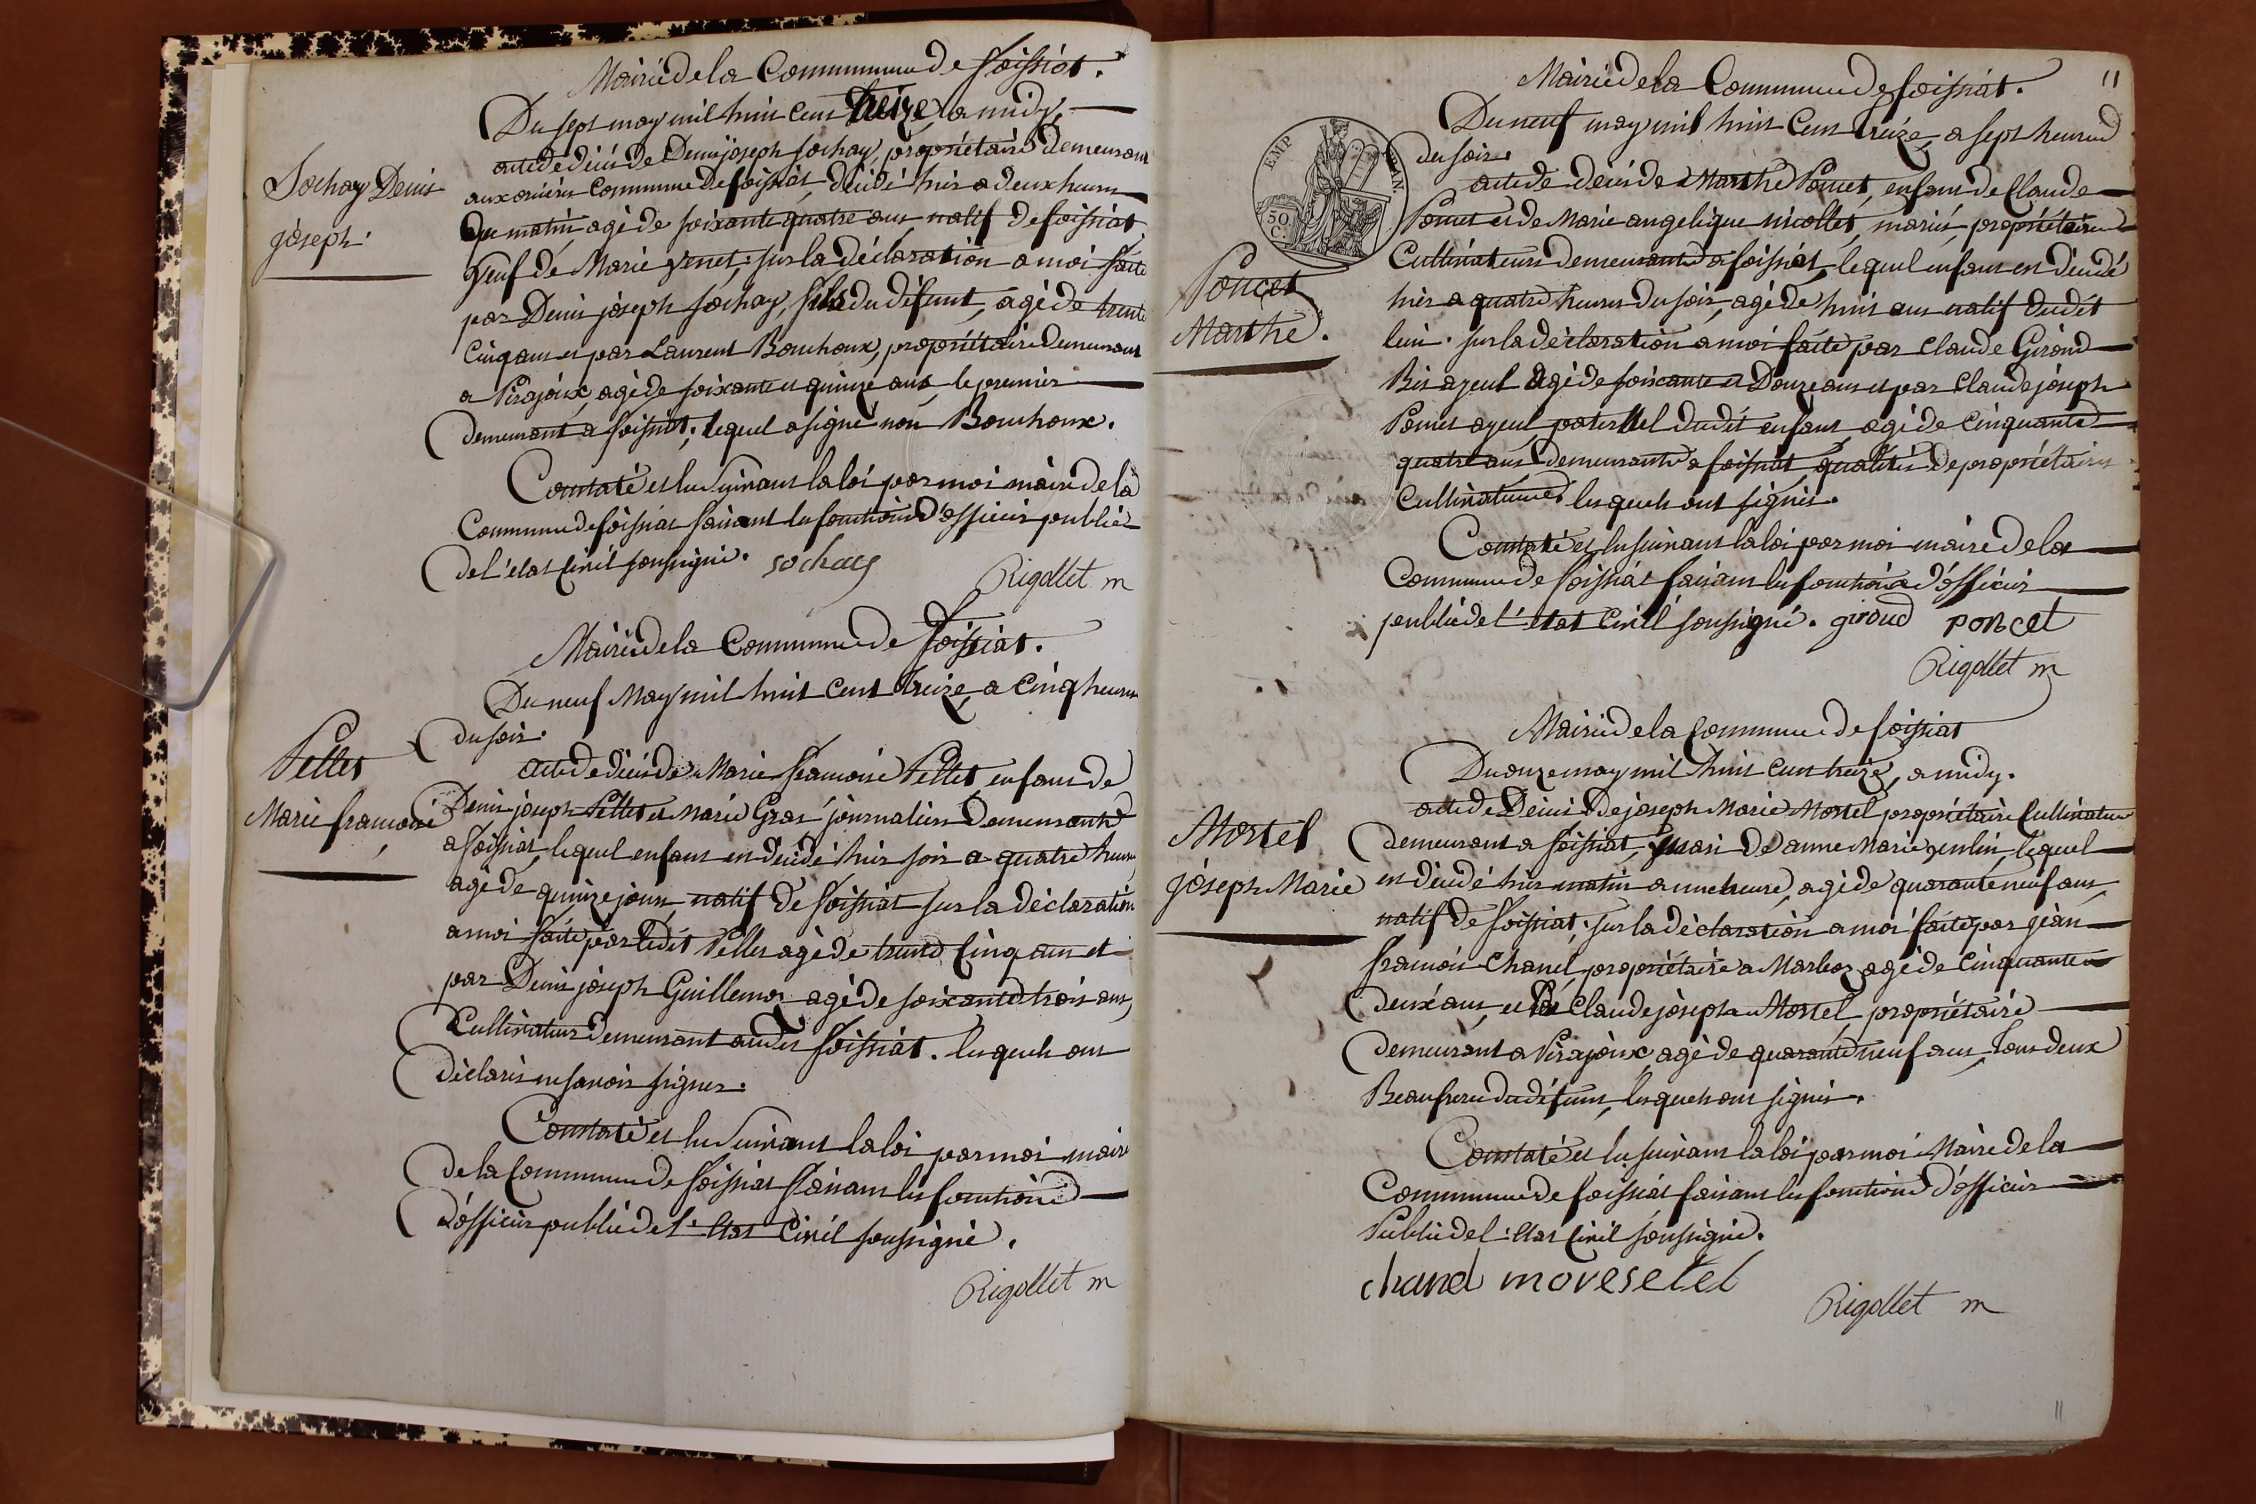 Mairie de la Commune de foissiat.
Du sept may mil huit cent treize, a midy,
acte de décés de Denis joseph sochay, propriétaire demeurant
aux orcières commune de foissiat, décédé hier a deux heures
du matin agé de soixante quatre ans natif de foissiat
veuf de Marie venet; sur la déclaration a moi faite
par Denis joseph sochay, fils du défunt, agé de trente
cinq ans et par Laurent Bouchoux, propriétaire demeurant
a Pirajoux, agé de soixante et quinze ans, le premier
demeurant a foissiat; lequel a signé non Bouchoux.
Constaté et lu suivant la loi par moi maire de la
Commune de foissiat faisant les fonctions d'officier public
de l'état civil soussigné. sochay
Rigollet m
Sochay Denis
joseph.
Mairie de la Commune de foissiat.
Du neuf May mil huit cent treize, a cinq heures
du soir.
acte de décés de Marie francoise Pellet enfant de
Denis joseph Pellet et Marie Gras journaliers demeurants
a foissiat, lequel enfant est décédé hier soir a quatre heures
agé de quinze jours, natif de foissiat sur la déclaration
a moi faite par ledit Pellet agé de trente cinq ans et
par Denis joseph Guillemot agé de soixante trois ans,
Cultivateurs demeurant audit foissiat. lesquels ont
déclarés ne savoir signer.
Constaté et lu suivant la loi par moi maire
de la Commune de foissiat faisant les fonctions
d'officier public de l'état Civil soussigné.
Rigollet m
Pellet
Marie francoise
11
Mairie de la Commune de foissiat.
Du neuf may mil huit Cent treize, a sept heures
du soir.
acte de décés de Marthe Poncet, enfant de Claude
Poncet et de Marie angelique nicollet, mariés, propriétaires
Cultivateurs demeurants a foissiat, lequel enfant est décédé
hier a quatre heures du soir, agé de huit ans natif dudit
lieu. sur la déclaration a moi faite par Claude Giroud
Bis ayeul agé de soixante et Douze ans et par Claude joseph
Poncet ayeul paternel dudit enfant, agé de cinquante
quatre ans, demeurants a foissiat, qualités de propriétaires
Cultivateurs lesquels ont signés.
Constaté et lu suivant la loi par moi maire de la
Commune de foissiat faisant les fonctions d'officier
public de l'état civil soussigné. giroud poncet
Rigollet m
EMP
RAN.
50
C.
Poncet
Marthe.
Mairie de la Commune de foissiat
Du onze may mil huit cent treize, a midy.
acte de Décés de joseph Marie Mortel propriétaire Cultivateur
demeurant a foissiat, mari de anne Marie, lequel
est décédé hier matin a une heure, agé de quarante neuf ans,
natif de foissiat; sur la déclaration a moi faite par jean
francois Chanel, propriétaire a Marboz agé de cinquante
deux ans, et Claude joseph Mortel, propriétaire
demeurant a Pirajoux, agé de quarante neuf ans, tous deux
Beaufreres du défunt, lesquels ont signés.
Constaté et lu suivant la loi par moi Maire de la
Commune de foissiat faisant les fonctions d'officier
Public de l'état civil soussigné.
chanel
Rigollet m
Mortel
joseph Marie
11